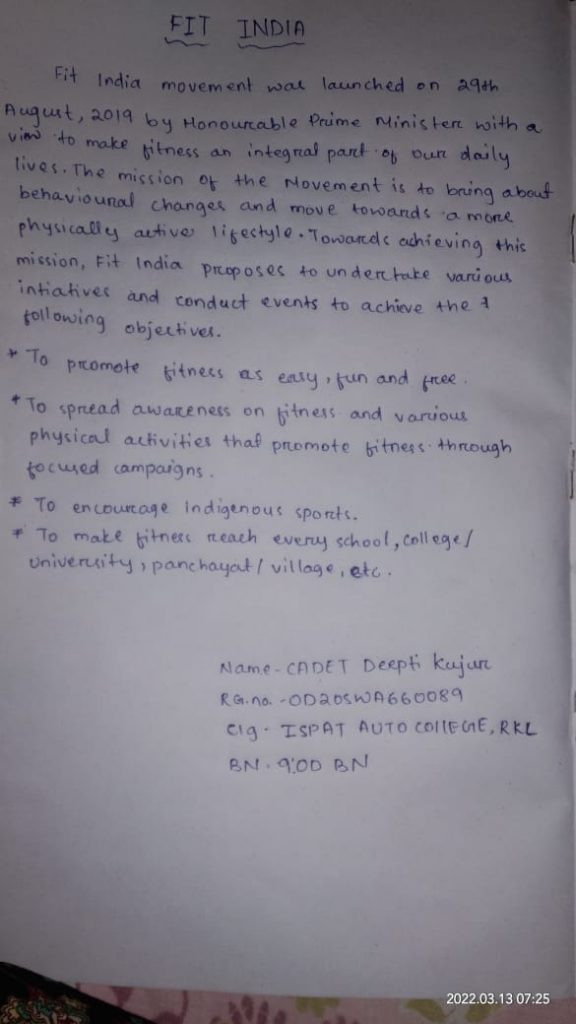 FIT INDIA
Fit India movement was launched on 29th
August, 2019 by Honourable Prime Minister with a
view to make fitness an integral part of our daily
lives. The mission of the Movement is to bring about
behavioural changes and move towards a more
physically active lifestyle. Towards achieving this
mission, Fit India proposes to undertake various
intiatives and conduct events to achieve the
following objectives.
* To promote fitness as easy, fun and free.
* To spread awareness on fitness and various
physical activities that promote fitness through
focused campaigns.
* To encourage Indigenous sports.
* To make fitness reach every school, college/
university, panchayat/village, etc.
Name - CADET Deepti Kujur
RG.no - OD20SWA660089
Clg - ISPAT AUTO COllEGE, RKL
BN. 9'OD BN
2022.03.13 07:25